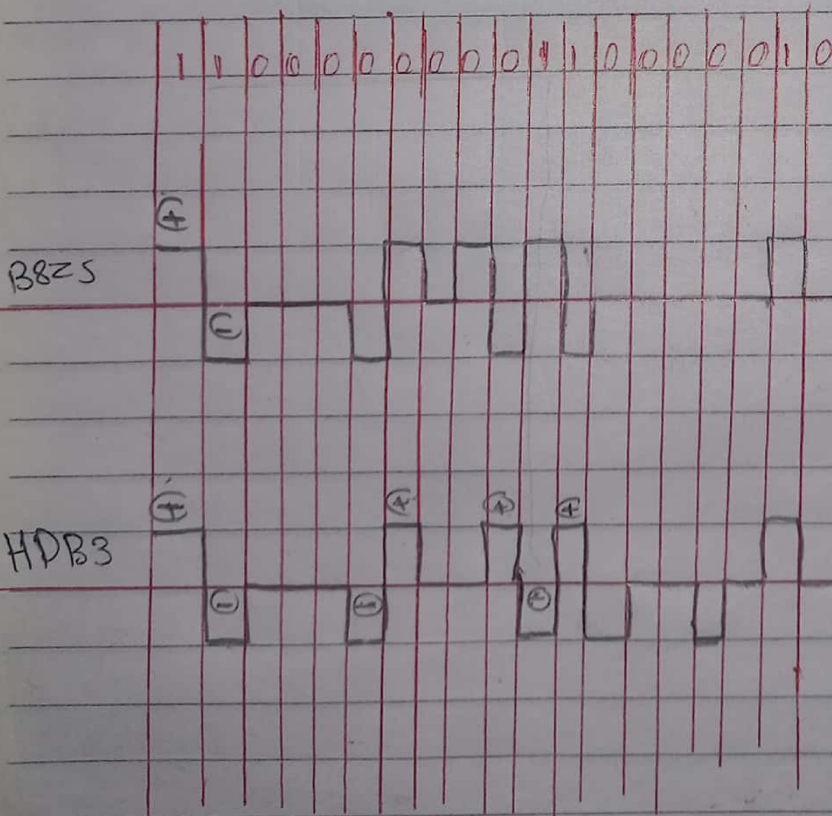 1 1 0 0 0 0 0 0 0 0 1 1 0 0 0 0 0 1 0
+
B8ZS
-
+ + + +
HDB3
- - -